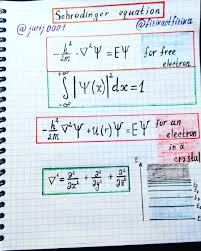 Schrodinger equation
@jurij0001 @fizwotfizwa
-ħ²/2m · ∇²Ψ = EΨ for free electron
∫₋∞^+∞ |Ψ(x)|² dx = 1
-ħ²/2m ∇²Ψ + U(r)Ψ = EΨ for an electron in a crystal
∇² = ∂²/∂x² + ∂²/∂y² + ∂²/∂z²
E